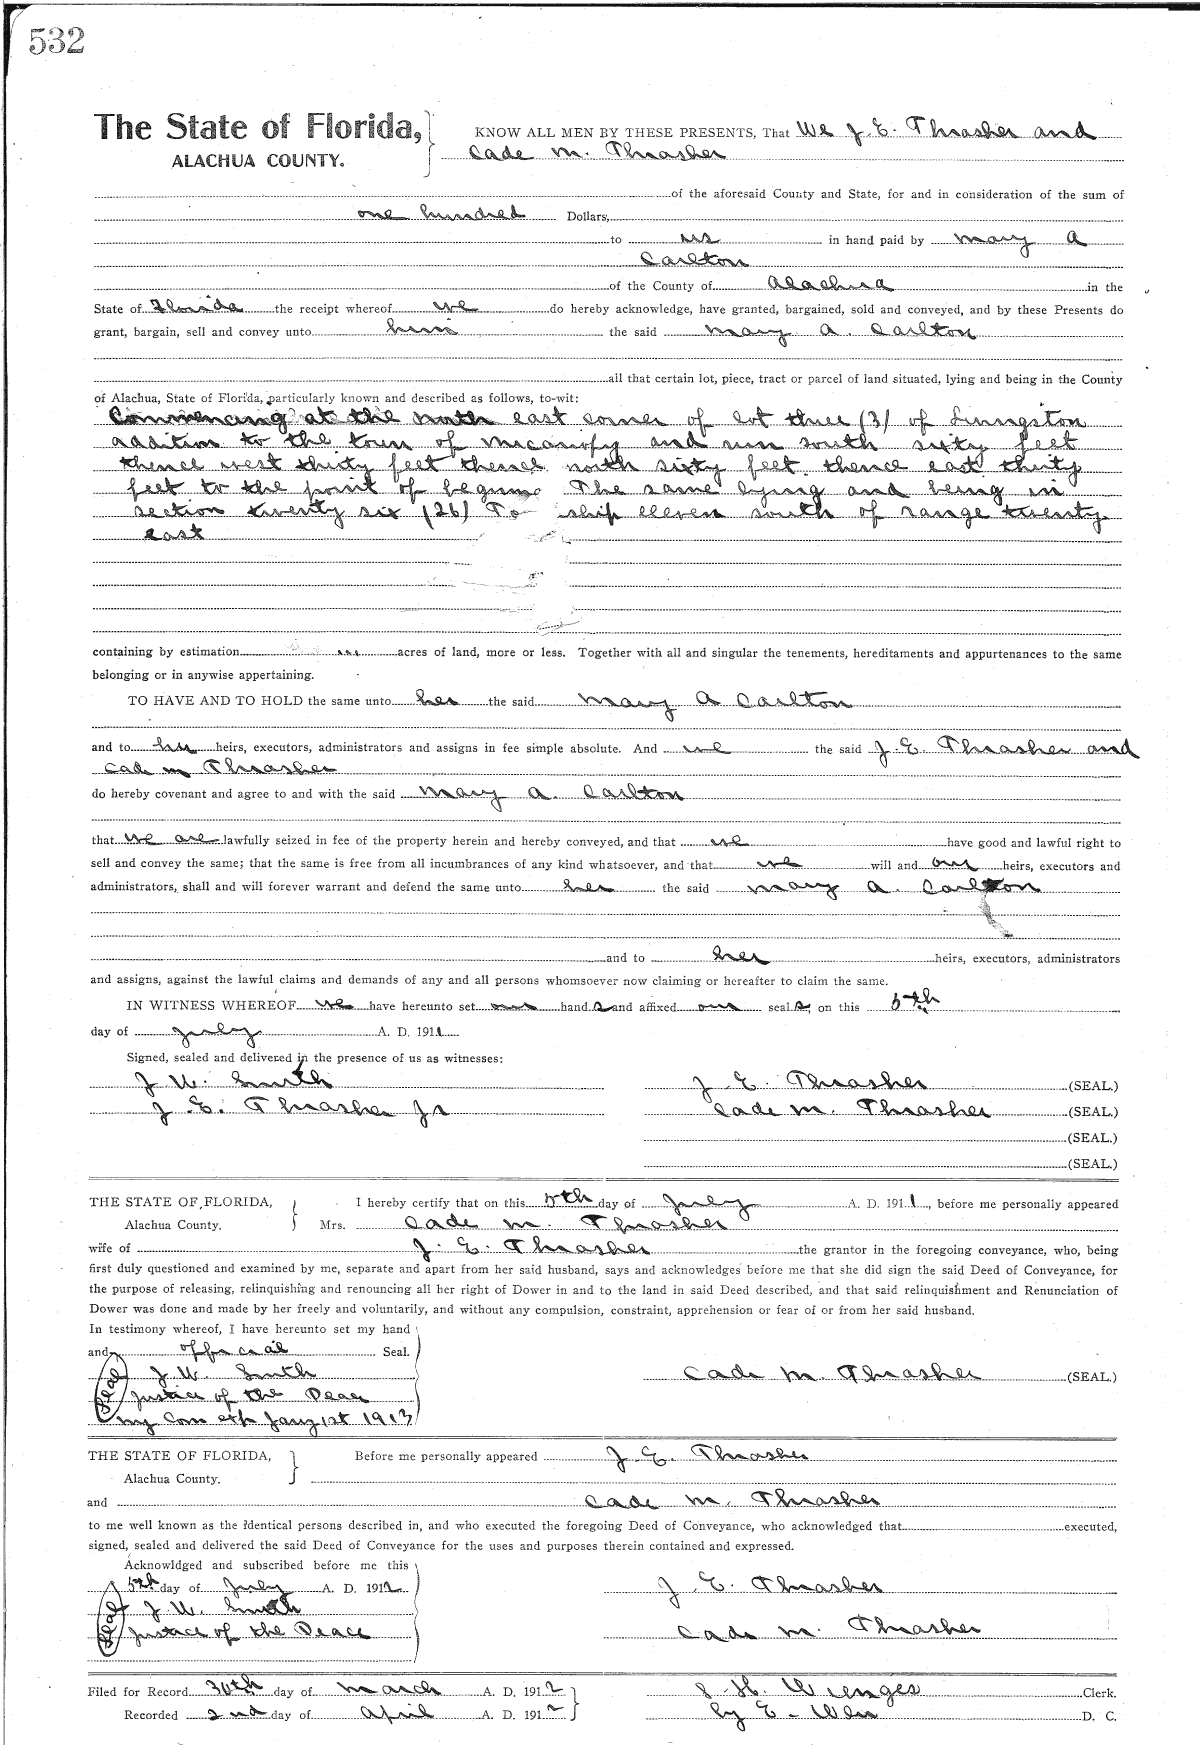 532
The State of Florida, KNOW ALL MEN BY THESE PRESENTS, That We J. E. Thrasher and
ALACHUA COUNTY. Cade M. Thrasher
of the aforesaid County and State, for and in consideration of the sum of
one hundred Dollars,
to us in hand paid by Mary A
Carlton
of the County of Alachua in the
State of Florida the receipt whereof we do hereby acknowledge, have granted, bargained, sold and conveyed, and by these Presents do
grant, bargain, sell and convey unto him the said Mary A. Carlton
all that certain lot, piece, tract or parcel of land situated, lying and being in the County
of Alachua, State of Florida, particularly known and described as follows, to-wit:
Commencing at the north east corner of lot three (3) of Livingston
addition to the town of Micanopy and run south sixty feet
thence west thirty feet thence north sixty feet thence east thirty
feet to the point of The same lying and being in
section twenty six (26) To ship eleven south of range twenty
east
containing by estimation acres of land, more or less. Together with all and singular the tenements, hereditaments and appurtenances to the same
belonging or in anywise appertaining.
TO HAVE AND TO HOLD the same unto her the said Mary A Carlton
and to her heirs, executors, administrators and assigns in fee simple absolute. And we the said J. E. Thrasher and
Cade M Thrasher
do hereby covenant and agree to and with the said Mary A. Carlton
that we are lawfully seized in fee of the property herein and hereby conveyed, and that we have good and lawful right to
sell and convey the same; that the same is free from all incumbrances of any kind whatsoever, and that we will and our heirs, executors and
administrators, shall and will forever warrant and defend the same unto her the said Mary A. Carlton
and to her heirs, executors, administrators
and assigns, against the lawful claims and demands of any and all persons whomsoever now claiming or hereafter to claim the same.
IN WITNESS WHEREOF we have hereunto set our hands and affixed our seals on this 5th
day of July A. D. 1911
Signed, sealed and delivered in the presence of us as witnesses:
J W. Smith J. E. Thrasher (SEAL.)
J. E. Thrasher Jr Cade M. Thrasher (SEAL.)
(SEAL.)
(SEAL.)
THE STATE OF FLORIDA, I hereby certify that on this 5th day of July A. D. 1911, before me personally appeared
Alachua County. Mrs. Cade M. Thrasher
wife of J. E. Thrasher the grantor in the foregoing conveyance, who, being
first duly questioned and examined by me, separate and apart from her said husband, says and acknowledges before me that she did sign the said Deed of Conveyance, for
the purpose of releasing, relinquishing and renouncing all her right of Dower in and to the land in said Deed described, and that said relinquishment and Renunciation of
Dower was done and made by her freely and voluntarily, and without any compulsion, constraint, apprehension or fear of or from her said husband.
In testimony whereof, I have hereunto set my hand
and official Seal.
Seal J. W. Smith Cade M. Thrasher (SEAL.)
Justice of the Peace
My Com exp Jany 1st 1913
THE STATE OF FLORIDA, Before me personally appeared J. E. Thrasher
Alachua County.
and Cade M. Thrasher
to me well known as the identical persons described in, and who executed the foregoing Deed of Conveyance, who acknowledged that executed,
signed, sealed and delivered the said Deed of Conveyance for the uses and purposes therein contained and expressed.
Acknowldged and subscribed before me this
5th day of July A. D. 1912 J. E. Thrasher
Seal J. W. Smith
Justace of the Peace Cade M. Thrasher
Filed for Record 30th day of March A. D. 1912 S. H. Wienges Clerk.
Recorded 2nd day of April A. D. 1912 by E. D. C.